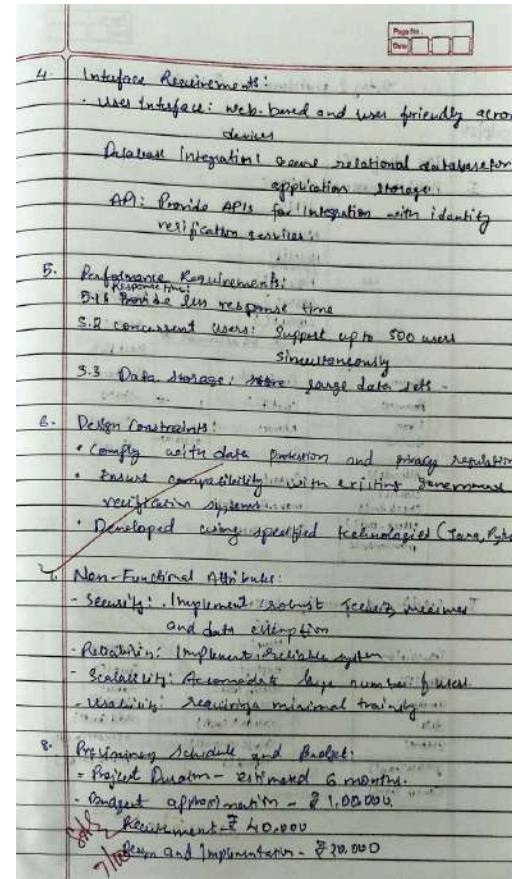 Page No.
Date
4. Interface Requirements:
• User Interface: web-based and user friendly acro
devices
Database Integration: secure relational database for
application storage.
API: Provide APIs for integration with identity
verification services.
5. Performance Requirements:
Response time:
5.1 Provide less response time
5.2 concurrent users: Support up to 500 users
simultaneously
5.3 Data Storage: store large data sets -
6. Design Constraints:
• Comply with data protection and privacy regulation
• Ensure compatibility with existing government
verification systems
• Developed using specified technologies (Java, Pyth
7. Non-Functional Attributes:
- Security: Implement robust security measures
and data
- Reliability: Implement reliable system
- Scalability: Accomodate large number of users.
- Usability: requiring minimal training
8. Preliminary Schedule and Budget:
- Project Duration - estimated 6 months.
- Budget approximation - ₹ 1,00,000.
Requirement - ₹ 40,000
Design and Implementation - ₹ 20,000